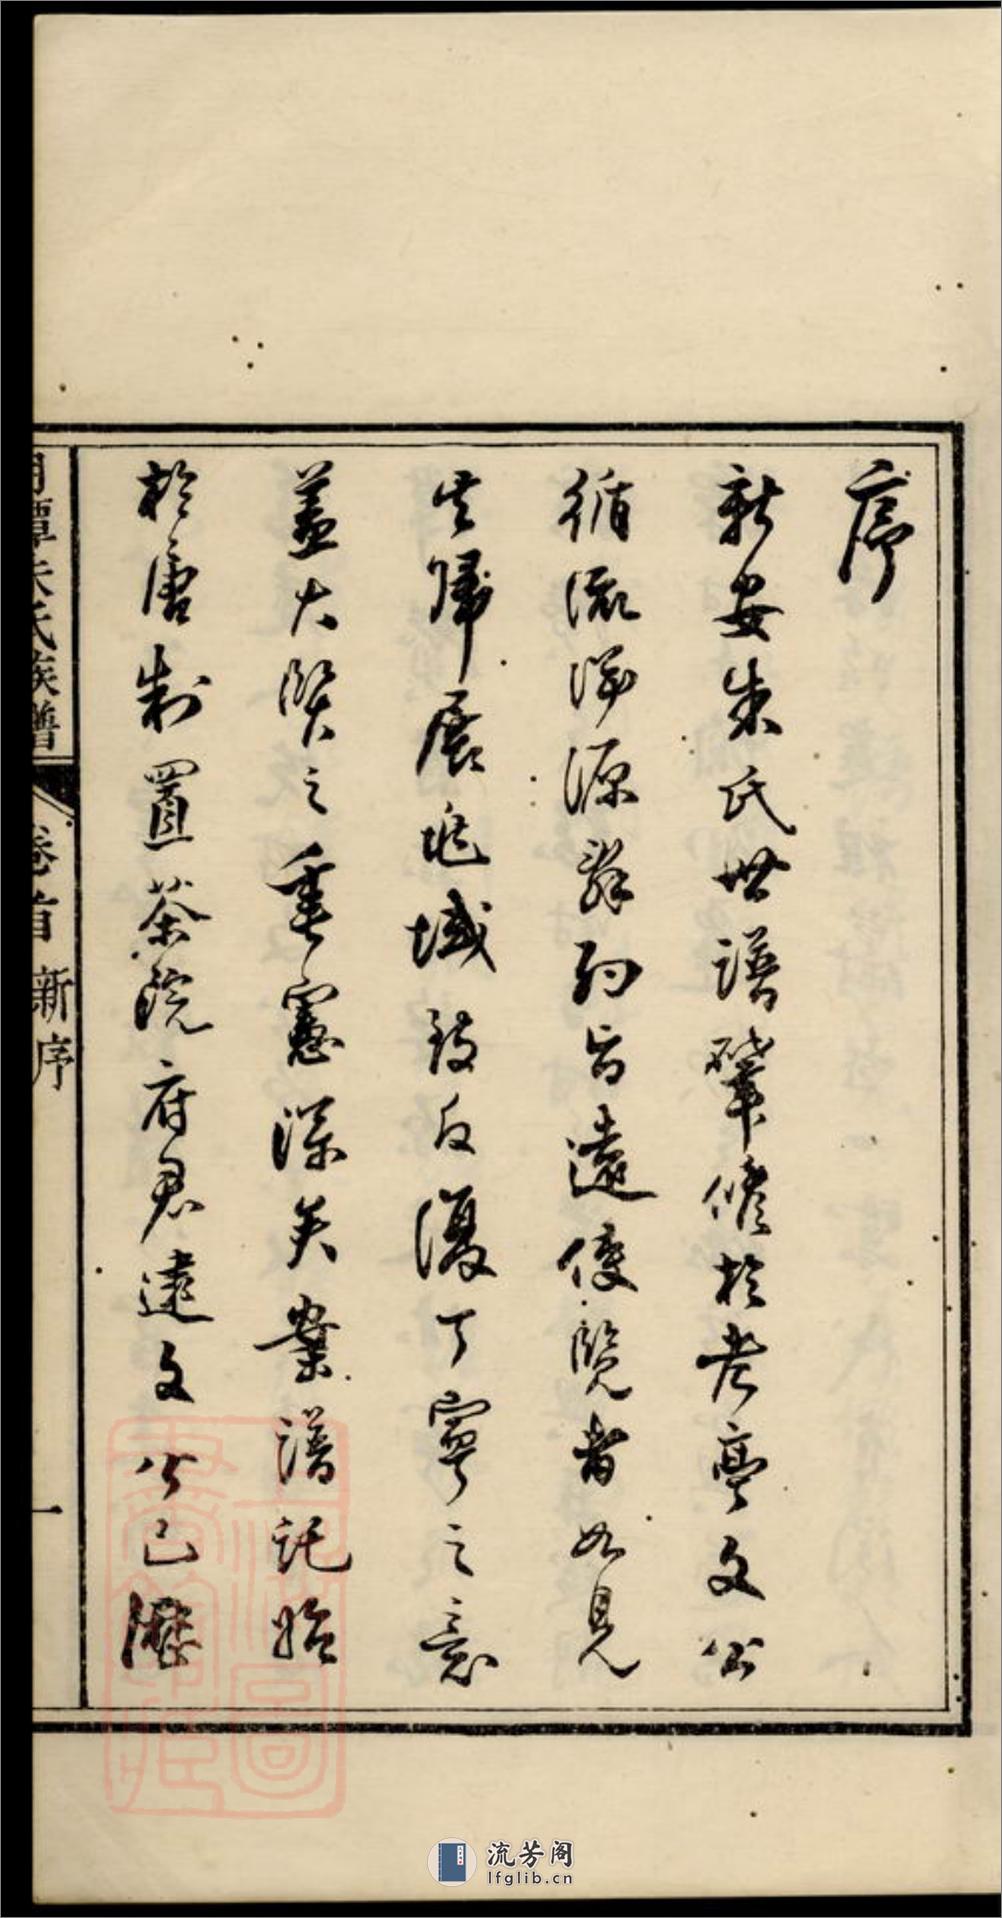 序
新安朱氏世譜肇修於考亭文公
循流溯源辭約旨遠俊覽者如見
其歸展兆域致反復丁寧之意
蓋大賢之垂憲深矣案譜記始
於唐制置茶院府君逮文公已歷
月潭朱氏族譜 卷首 新序 一
流芳阁
lfglib.cn